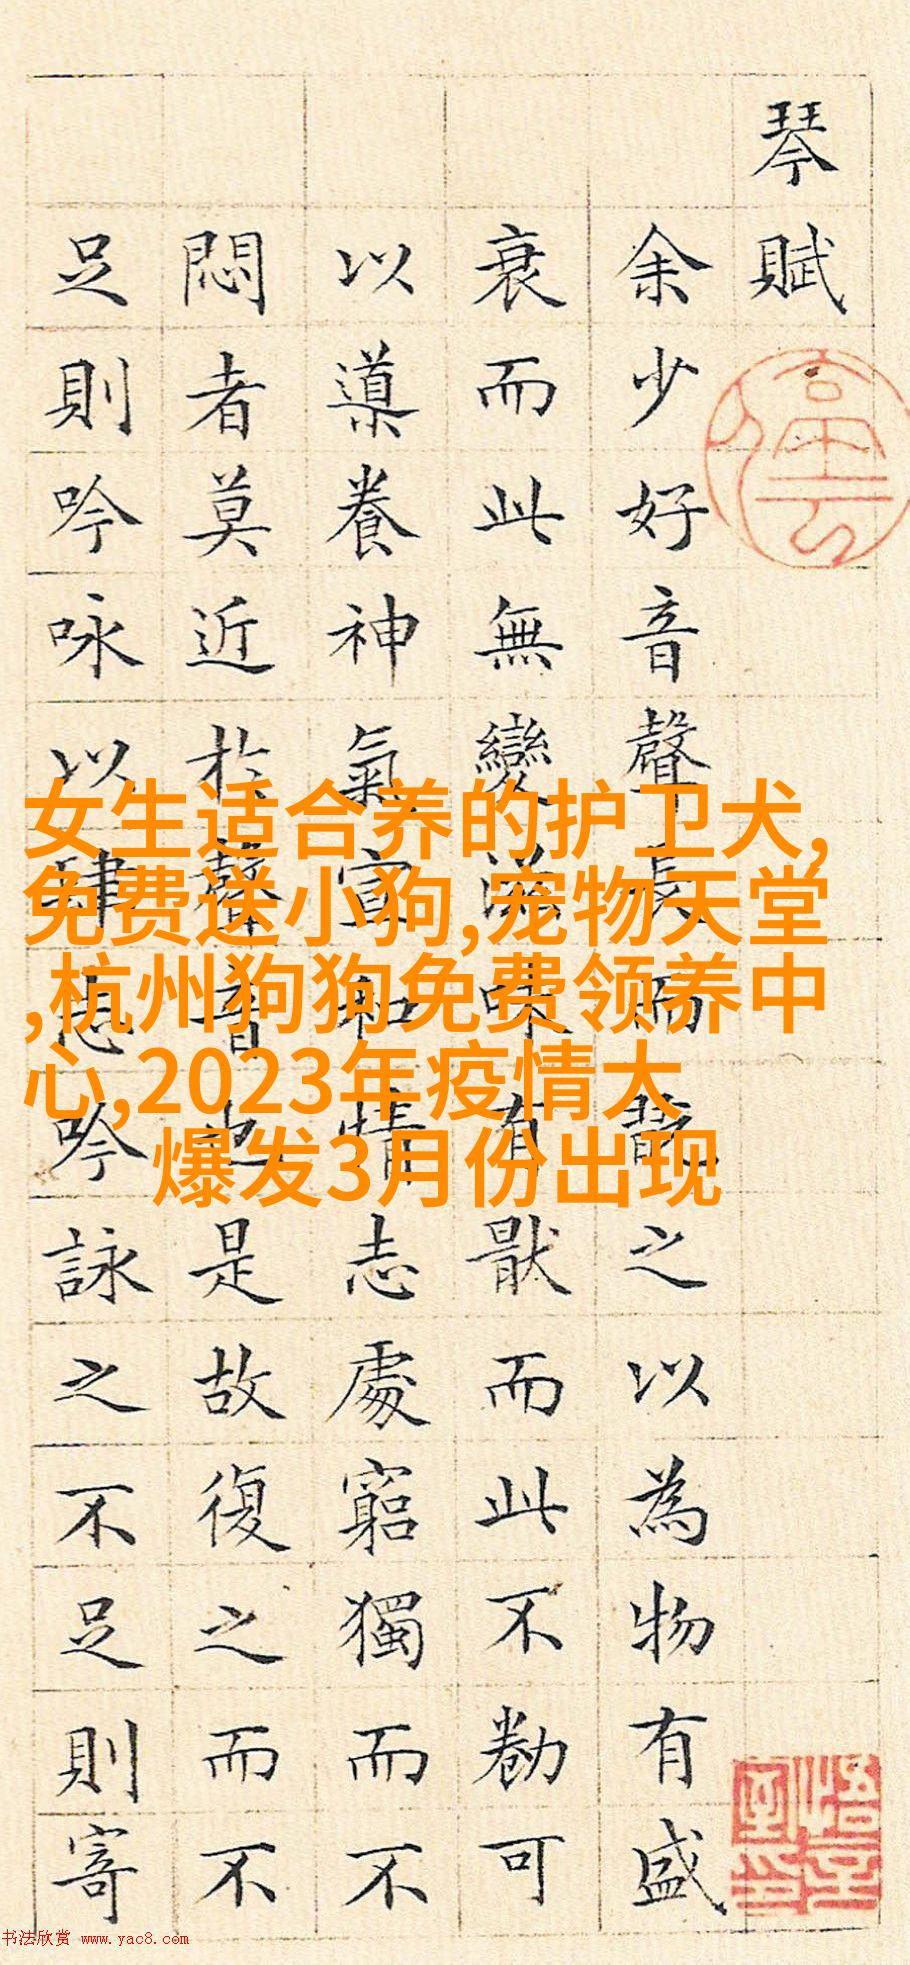 琴賦
余少好音聲長而翫之以為物有盛
衰而此無變滋味有猒而此不勌可
以導養神氣宣和情志處窮獨而不
悶者莫近於聲音也是故復之而不
足則吟咏以肆志吟詠之不足則寄
停云
悟言室印
女生适合养的护卫犬,
免费送小狗,宠物天堂
,杭州狗狗免费领养中
心,2023年疫情大
爆发3月份出现
书法欣赏 www.yac8.com